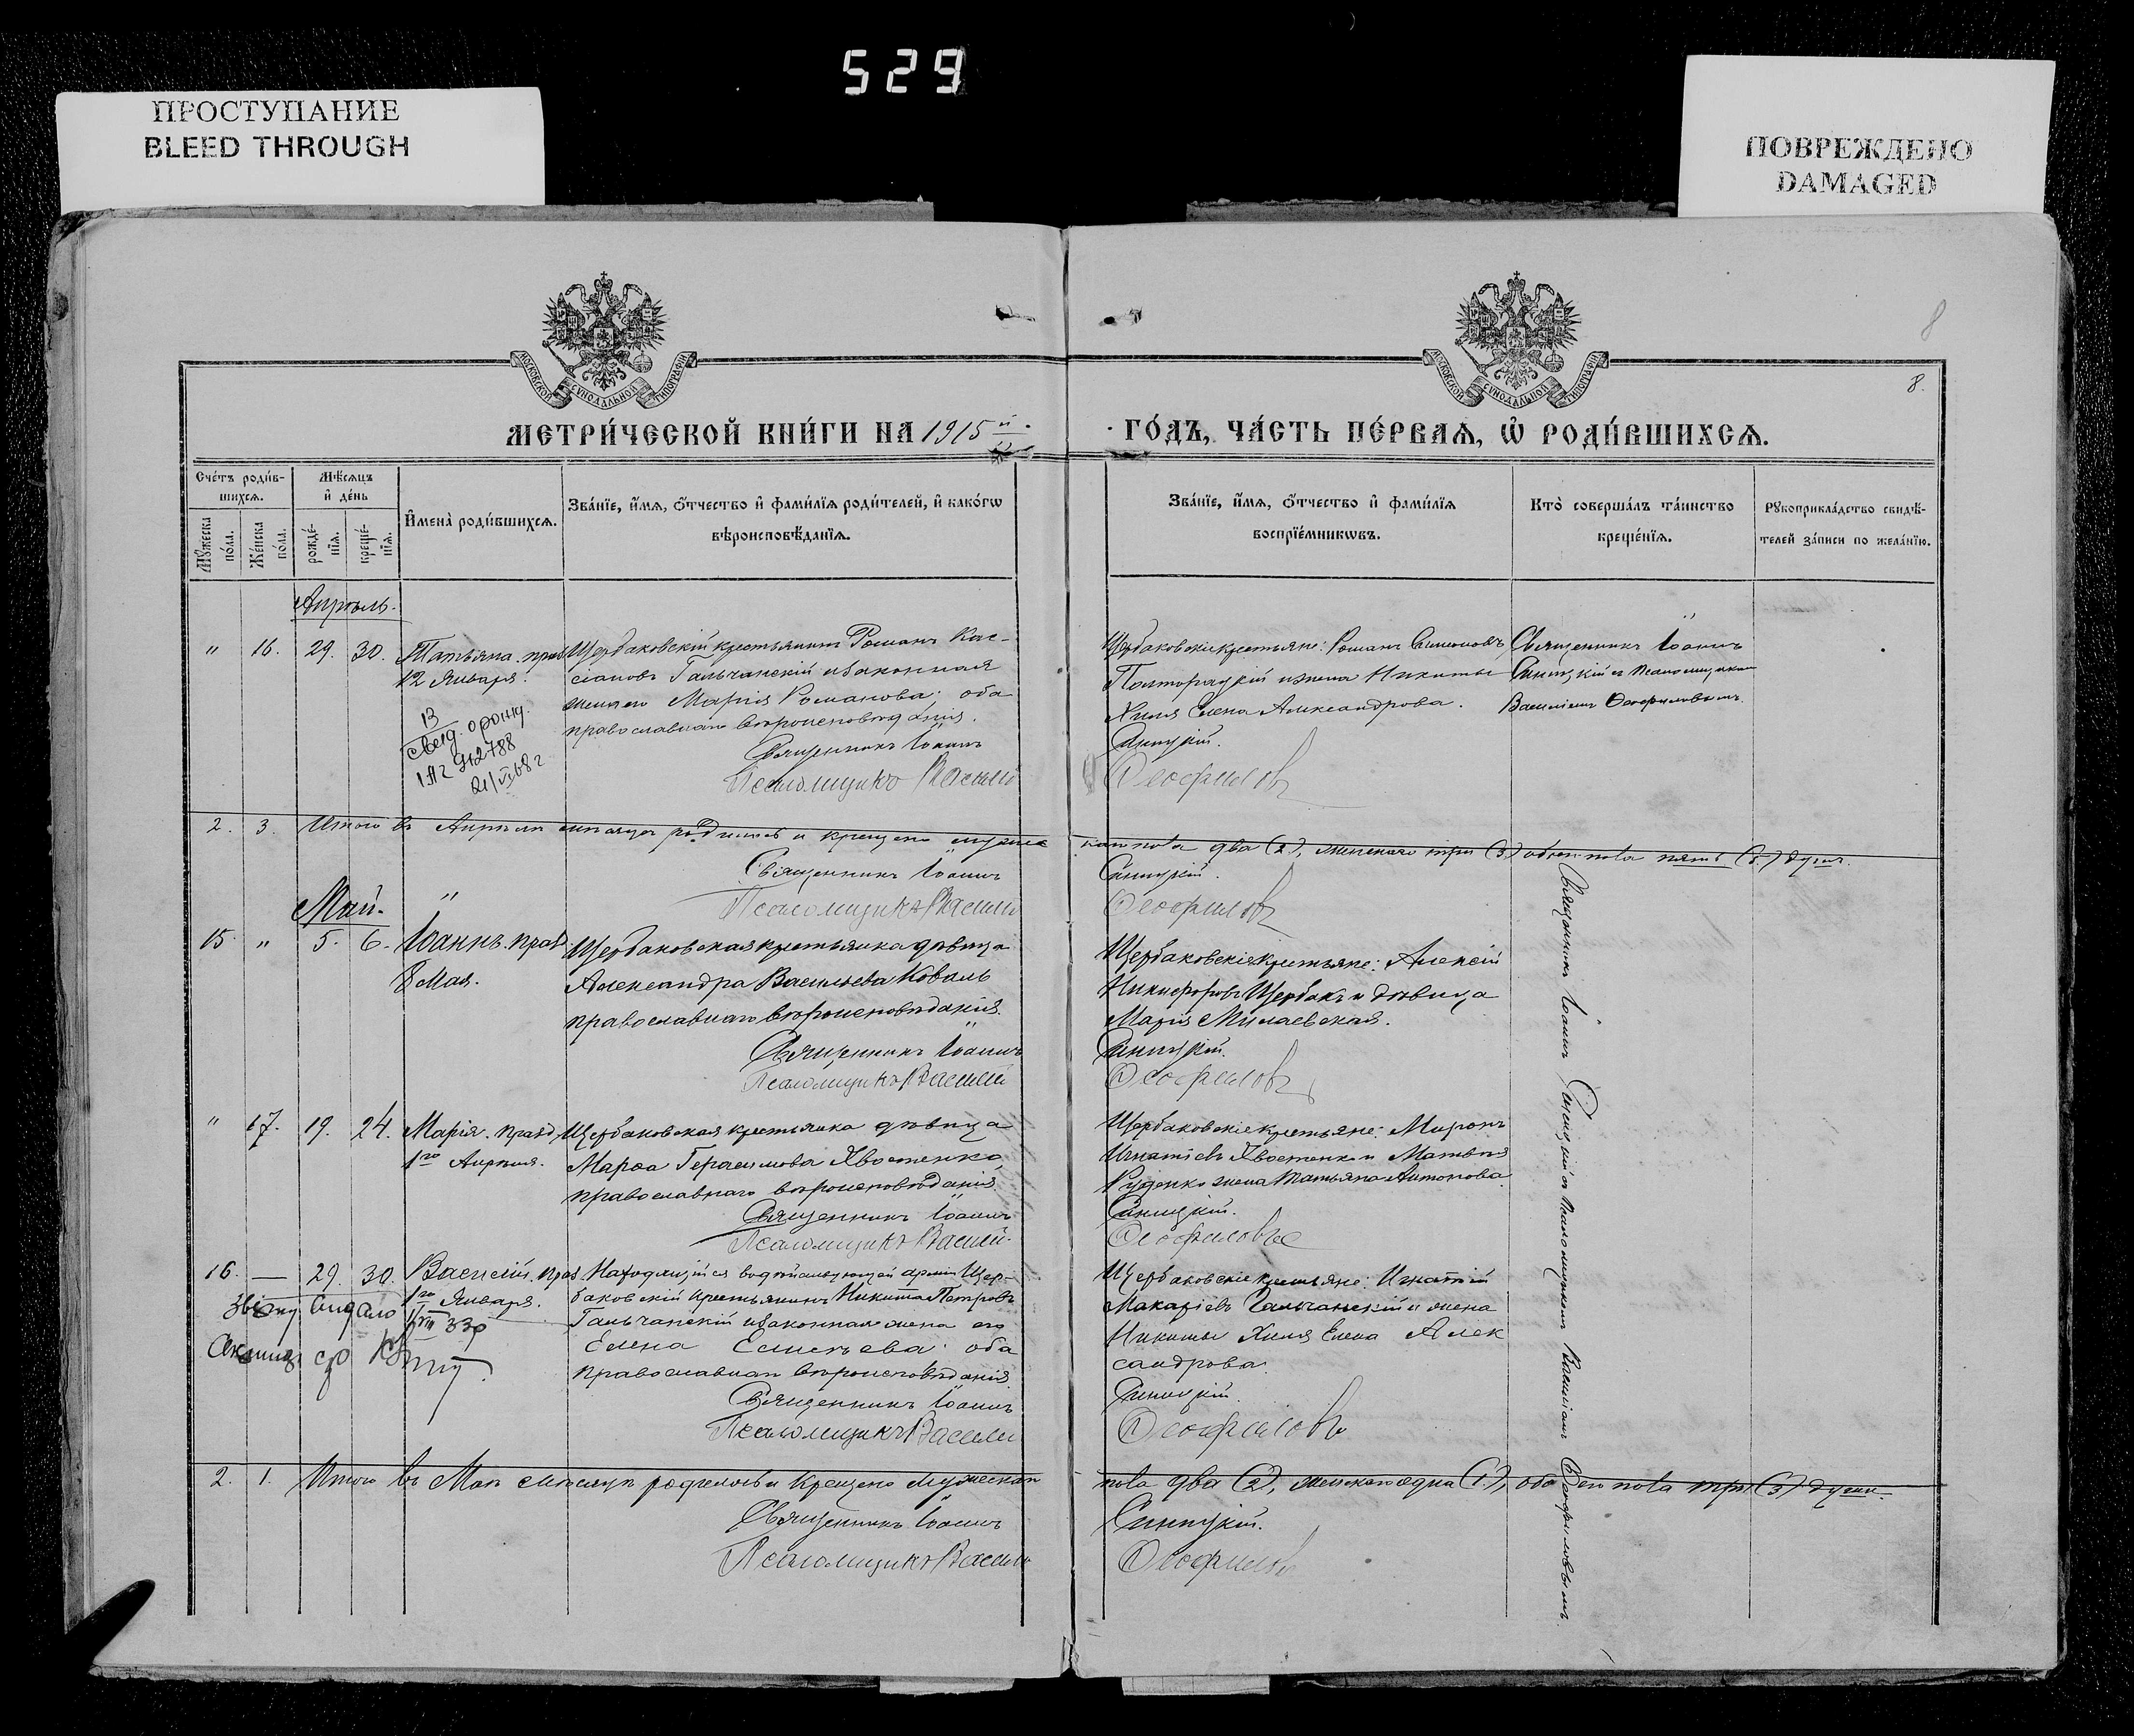 529
ПРОСТУПАНИЕ
BLEED THROUGH
ПОВРЕЖДЕНО
DAMAGED
МОСКОВСКОЙ СѴНОДАЛЬНОЙ ТИПОГРАФІИ
МОСКОВСКОЙ СѴНОДАЛЬНОЙ ТИПОГРАФІИ
8
8.
МЕТРИ́ЧЕСКОЙ КНИ́ГИ НА 1915 й.
ГО́ДЪ, ЧА́СТЬ ПЕ́РВАѦ, Ѡ҆ РОДИ́ВШИХСѦ.
Сче́тъ роди́в-
шихсѧ.
Мꙋ́жеска по́ла.
Же́нска по́ла.
Мѣ́сѧцъ
и҆ де́нь
рожде́-
нїѧ.
креще́-
нїѧ.
И҆мена̀ роди́вшихсѧ.
Зва́нїе, и҆́мѧ, ѻ҆́тчество и҆ фами́лїѧ роди́телей, и҆ како́гѡ
вѣроисповѣ́данїѧ.
Зва́нїе, и҆́мѧ, ѻ҆́тчество и҆ фами́лїѧ
воспрїе́мникѡвъ.
Кто̀ соверша́лъ та́инство
креще́нїѧ.
Рꙋкоприкла́дство свидѣ́-
телей за́писи по жела́нїю.
Апрѣль.
" 16. 29. 30. Татьяна. праз
12 Января.
13
свид. о рожд.
21/VI 68 г
Щербаковскій крестьянинъ Романъ Кас-
сіановъ Гальчанскій и законная
жена его Марія Романова: оба
православнаго вѣроисповѣданія.
Священникъ Іоаннъ
Псаломщикъ Василій
Щербаковскіе крестьяне: Романъ Симоновъ
Полторацкій и жена Никиты
Хиля Елена Александрова.
Синицкій.
Ѳеофиловъ
Священникъ Іоаннъ
Синицкій съ Псаломщикомъ
Василіемъ Ѳеофиловымъ.
2. 3. Итого въ Апрѣлѣ мѣсяцѣ родилось и крещено мужес
каго пола два (2), женскаго три (3) обоего пола пять (5) душъ.
Священникъ Іоаннъ
Псаломщикъ Василій
Синицкій.
Ѳеофиловъ
Май.
15. " 5. 6. Іоаннъ. празд.
8 Мая.
Щербаковская крестьянка дѣвица
Александра Васильева Коваль
православнаго вѣроисповѣданія.
Священникъ Іоаннъ
Псаломщикъ Василій
Щербаковскіе крестьяне: Алексій
Никифоровъ Щербакъ и дѣвица
Марія Милаевская.
Синицкій.
Ѳеофиловъ
Священникъ Іоаннъ Синицкій съ Псаломщикомъ Василіемъ Ѳеофиловымъ.
" 17. 19. 24. Марія. празд.
1го Апрѣля.
Щербаковская крестьянка дѣвица
Марѳа Герасимова Хвостенко,
православнаго вѣроисповѣданія.
Священникъ Іоаннъ
Псаломщикъ Василій.
Щербаковскіе крестьяне: Миронъ
Игнатіевъ Хвостенко и Матвѣя
Руденко жена Татьяна Антонова
Синицкій.
Ѳеофиловъ
16. — 29. 30. Василій. праз
1го Января.
VIII 33р
Находящійся въ дѣйствующей арміи Щер-
баковскій крестьянинъ Никита Петровъ
Гальчанскій и законная жена его
Елена Евсигнѣева: оба
православнаго вѣроисповѣданія.
Священникъ Іоаннъ
Псаломщикъ Василій
Щербаковскіе крестьяне: Игнатій
Макаріевъ Гальчанскій и жена
Никиты Хиля Елена Алек
сандрова.
Синицкій.
Ѳеофиловъ
2. 1. Итого въ Маѣ мѣсяцѣ родилось и крещено мужескаго
пола два (2), женскаго одна (1), обоего пола три (3) души.
Священникъ Іоаннъ
Псаломщикъ Василій
Синицкій.
Ѳеофиловъ